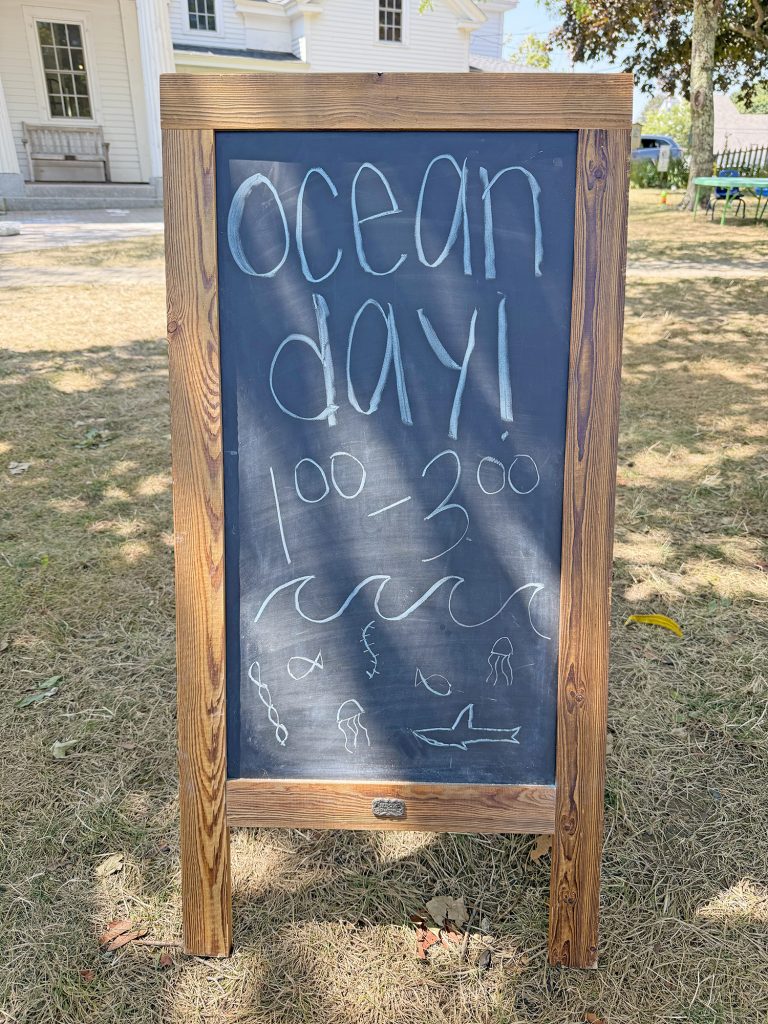 ocean
day!
100 - 3:00